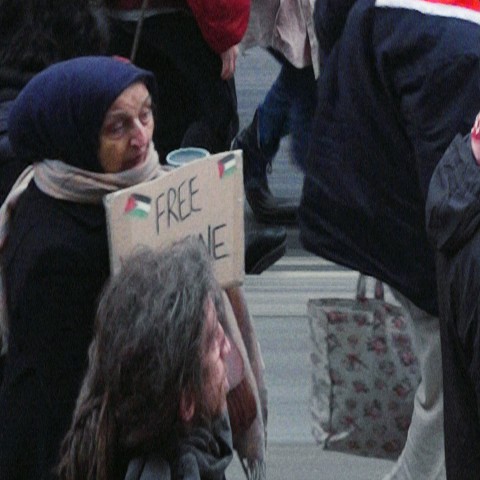 FREE
NE